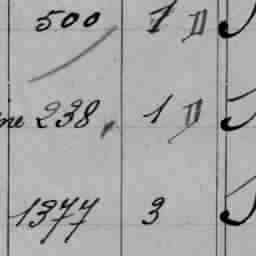 500 1 D
ine 238, 1 D
1377 3